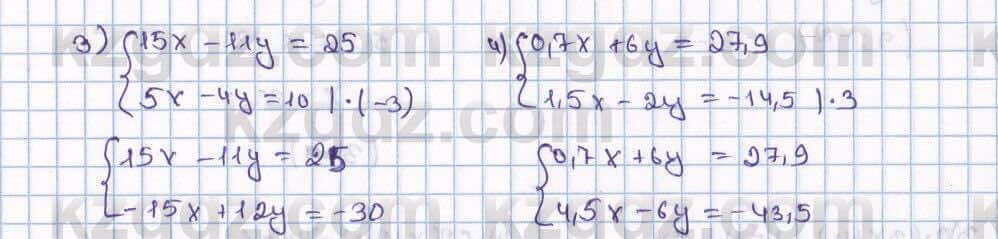 3) { 15x - 11y = 25
5x - 4y = 10 | · (-3)
{ 15x - 11y = 25
-15x + 12y = -30
4) { 0,7x + 6y = 27,9
1,5x - 2y = -14,5 | · 3
{ 0,7x + 6y = 27,9
4,5x - 6y = -43,5
kzgdz.com